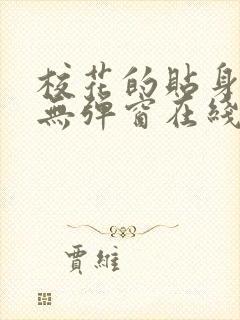 校花的貼身
無彈窗在綫
賈維